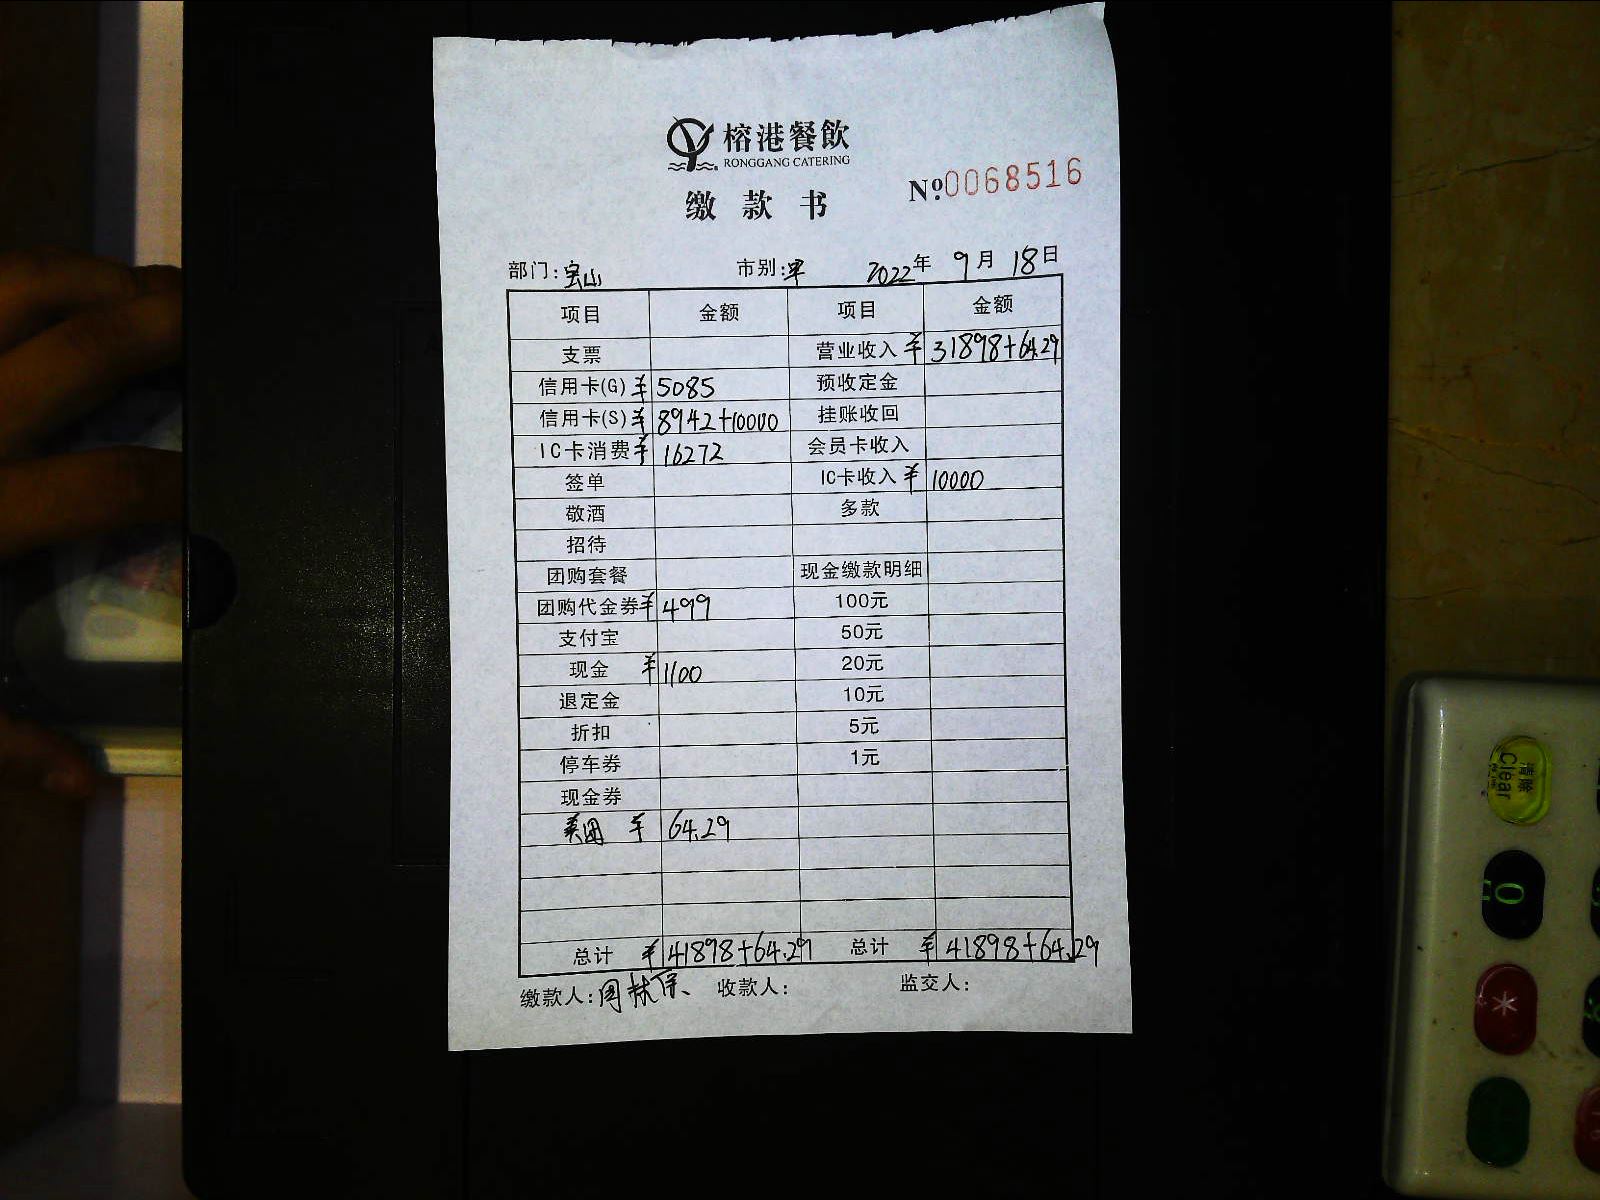 榕港餐飲
RONGGANG CATERING
缴款书
№.0068516
部门:宝山 市别:早 2022年 9月 18日
项目 金额 项目 金额
支票 营业收入 ¥ 31898+64.29
信用卡(G) ¥ 5085 预收定金
信用卡(S) ¥ 8942+10000 挂账收回
IC卡消费 ¥ 16272 会员卡收入
签单 IC卡收入 ¥ 10000
敬酒 多款
招待
团购套餐 现金缴款明细
团购代金券 ¥ 499 100元
支付宝 50元
现金 ¥ 1100 20元
退定金 10元
折扣 5元
停车券 1元
现金券
美团 ¥ 64.29
总计 ¥ 41898+64.29 总计 ¥ 41898+64.29
缴款人: 收款人: 监交人:
清除
Clear
0
*